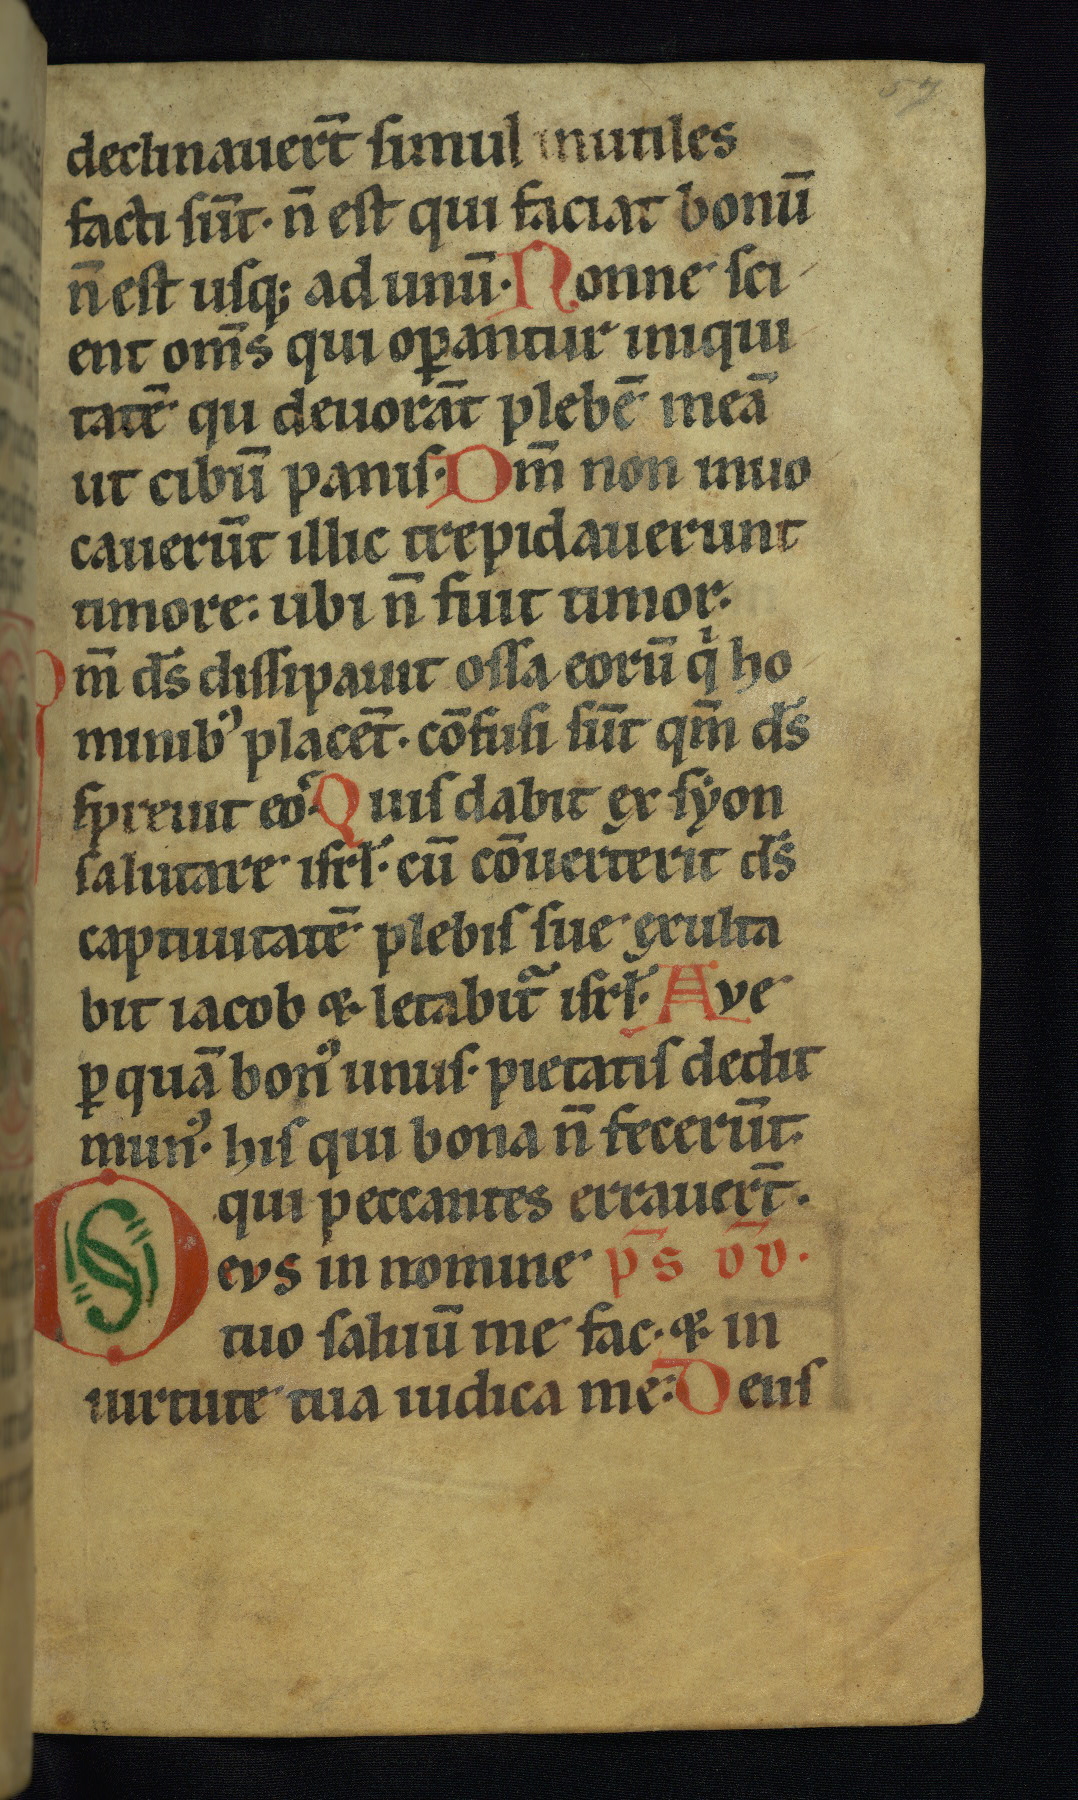 57
declinauer̄t simul inutiles
facti sūt. n̄ est qui faciat bonū
n̄ est usq; ad unū. Nonne sci
ent om̄s qui oꝑantur iniqui
tatē qu deuorāt plebē meā
ut cibū panis. Dm̄ non inuo
cauerūt illic trepidauerunt
timore: ubi n̄ fuit timor.
Dm̄ ds̄ dissipauit ossa eorū q̇ ho
minibꝰ placēt. cōfusi sūt qm̄ ds̄
spreuit eoˢ. Quis dabit ex syon
salutare isrl̄. cū cōuerterit ds̄
captiuitatē plebis sue exulta
bit iacob & letabit᷑ isrl̄. Ave
ꝑ quā bonꝰ unus. pietatis dedit
munꝰ. his qui bona n̄ fecerūt.
qui peccantes errauer̄t.
Deus in nomine ps̄ v̄v.
tuo saluū me fac. & in
uirtute tua iudica me: Deus